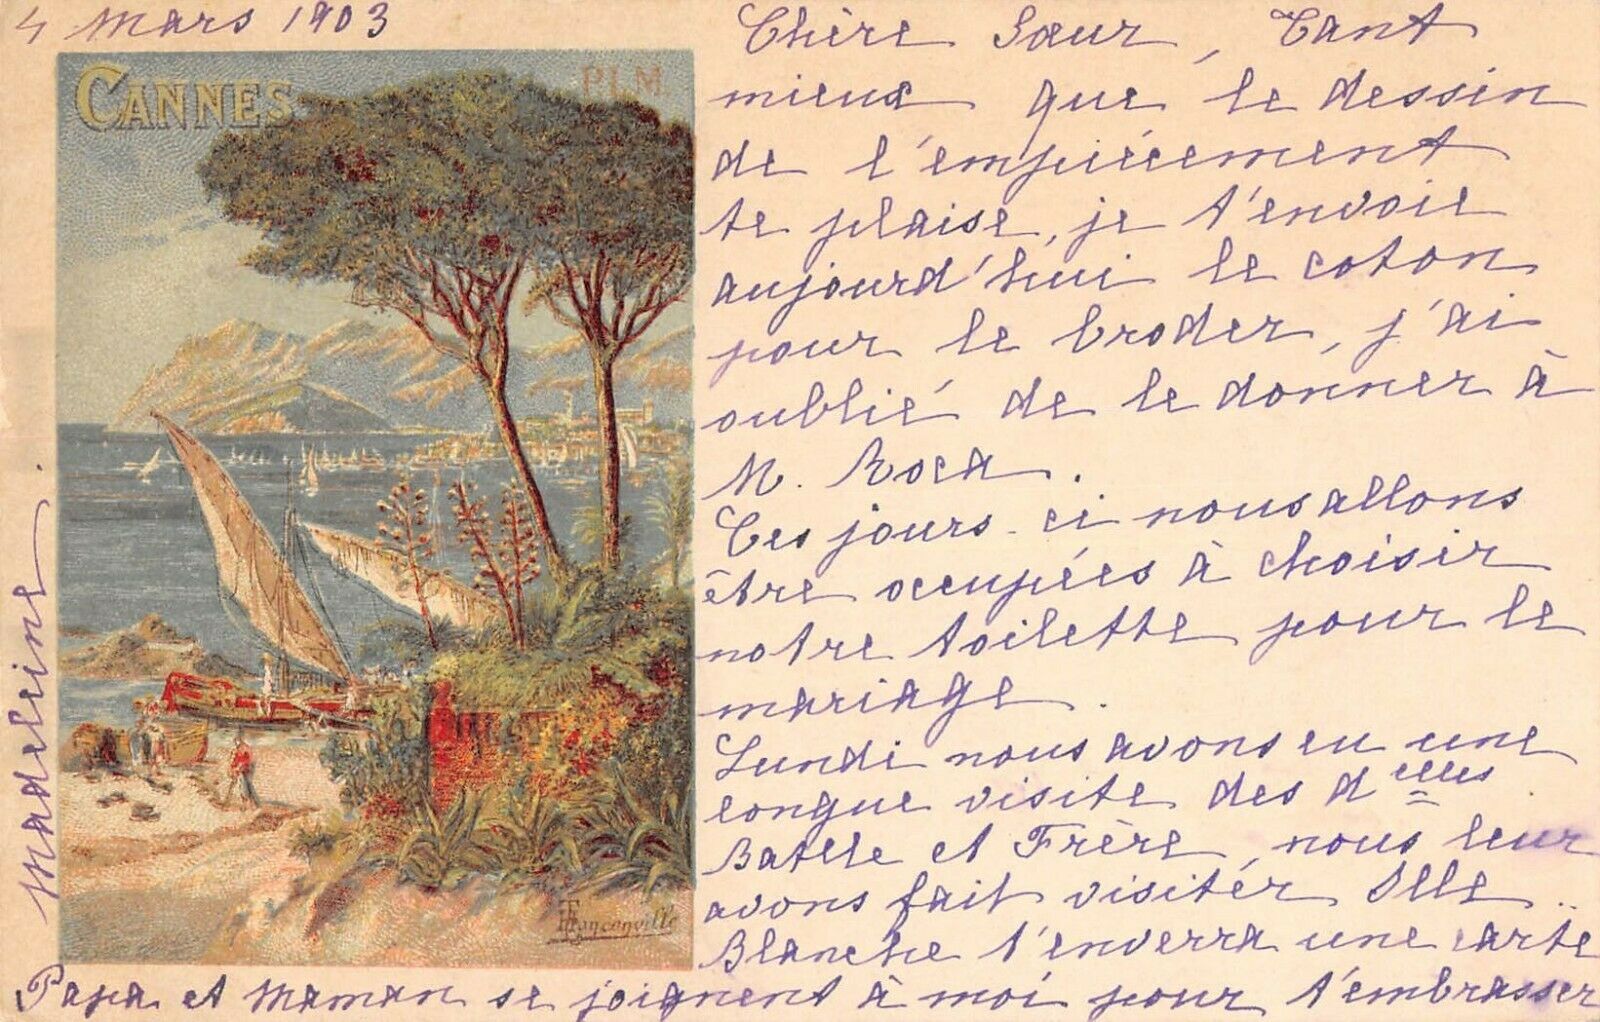 4 Mars 1903
CANNES
PLM
F. Hugo d'Alési
Chère Sœur, Tant
mieux que le dessin
de l'empiècement
te plaise, je t'envoie
aujourd'hui le coton
pour le broder, j'ai
oublié de le donner à
M. Roca.
Ces jours-ci nous allons
être occupées à choisir
notre toilette pour le
mariage.
Lundi nous avons eu une
longue visite des delles
Batlle et Frère, nous leur
avons fait visiter Ille..
Blanche t'enverra une carte
Papa et Maman se joignent à moi pour t'embrasser
Madeleine.